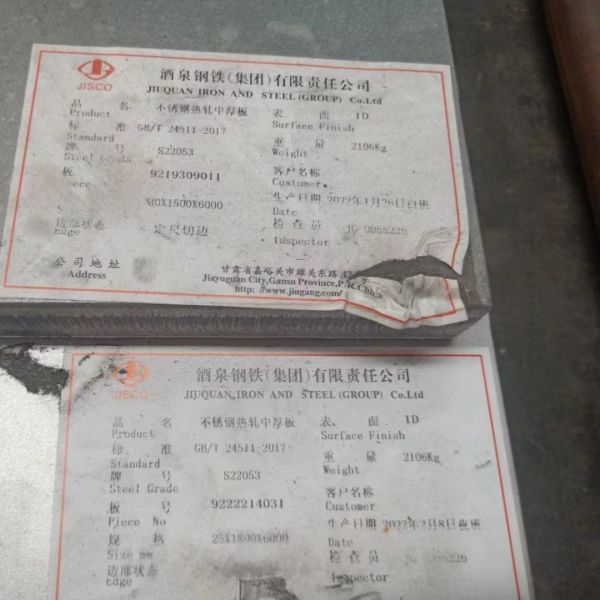 JISCO
酒泉钢铁(集团)有限责任公司
JIUQUAN IRON AND STEEL (GROUP) Co.Ltd
品 名 不锈钢热轧中厚板 表 面 1D
Product Surface Finish
标 准 GB/T 24511-2017 重 量 2106Kg
Standard Weight
牌 号 S22053 客户名称
Steel Customer
板 9219309011 生产日期 2022年1月26日白班
Date
X1500X6000 检查员
边部状态 定尺切边 Inspector
Edge
公司地址 甘肃省嘉峪关市雄关东路
Address Jiayuguan City,Gansu Province,P.R.China
http: //www.jiugang.com/
JISCO
酒泉钢铁(集团)有限责任公司
JIUQUAN IRON AND STEEL (GROUP) Co.Ltd
品 名 不锈钢热轧中厚板 表 面 1D
Product Surface Finish
标 准 GB/T 24511-2017 重 量 2106Kg
Standard Weight
牌 号 S22053 客户名称
Steel Grade Customer
板 号 9222214031 生产日期 2022年2月8日夜班
Piece No Date
规 格 25X1800X6000 检查员
Size mm Inspector
边部状态
Edge